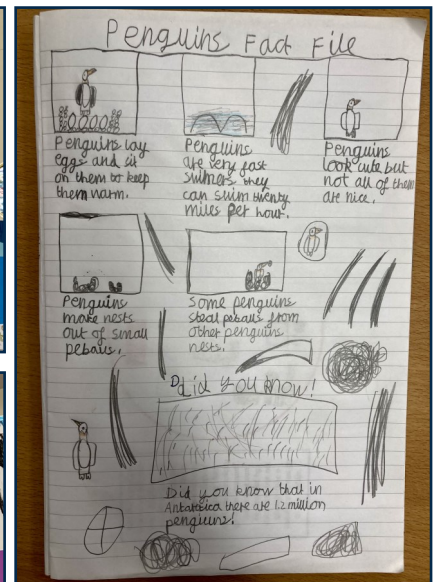 Penguins Fact File
Penguins lay
eggs and sit
on them to keep
them warm.
Penguins
are very fast
swimers they
can swim twenty
miles per hour.
Penguins
look cute but
not all of them
are nice.
Penguins
make nests
out of small
peballs.
Some penguins
steal peballs from
other penguins
nests.
Did you know!
Did you know that in
Antartica there are 1.2 million
penguins!